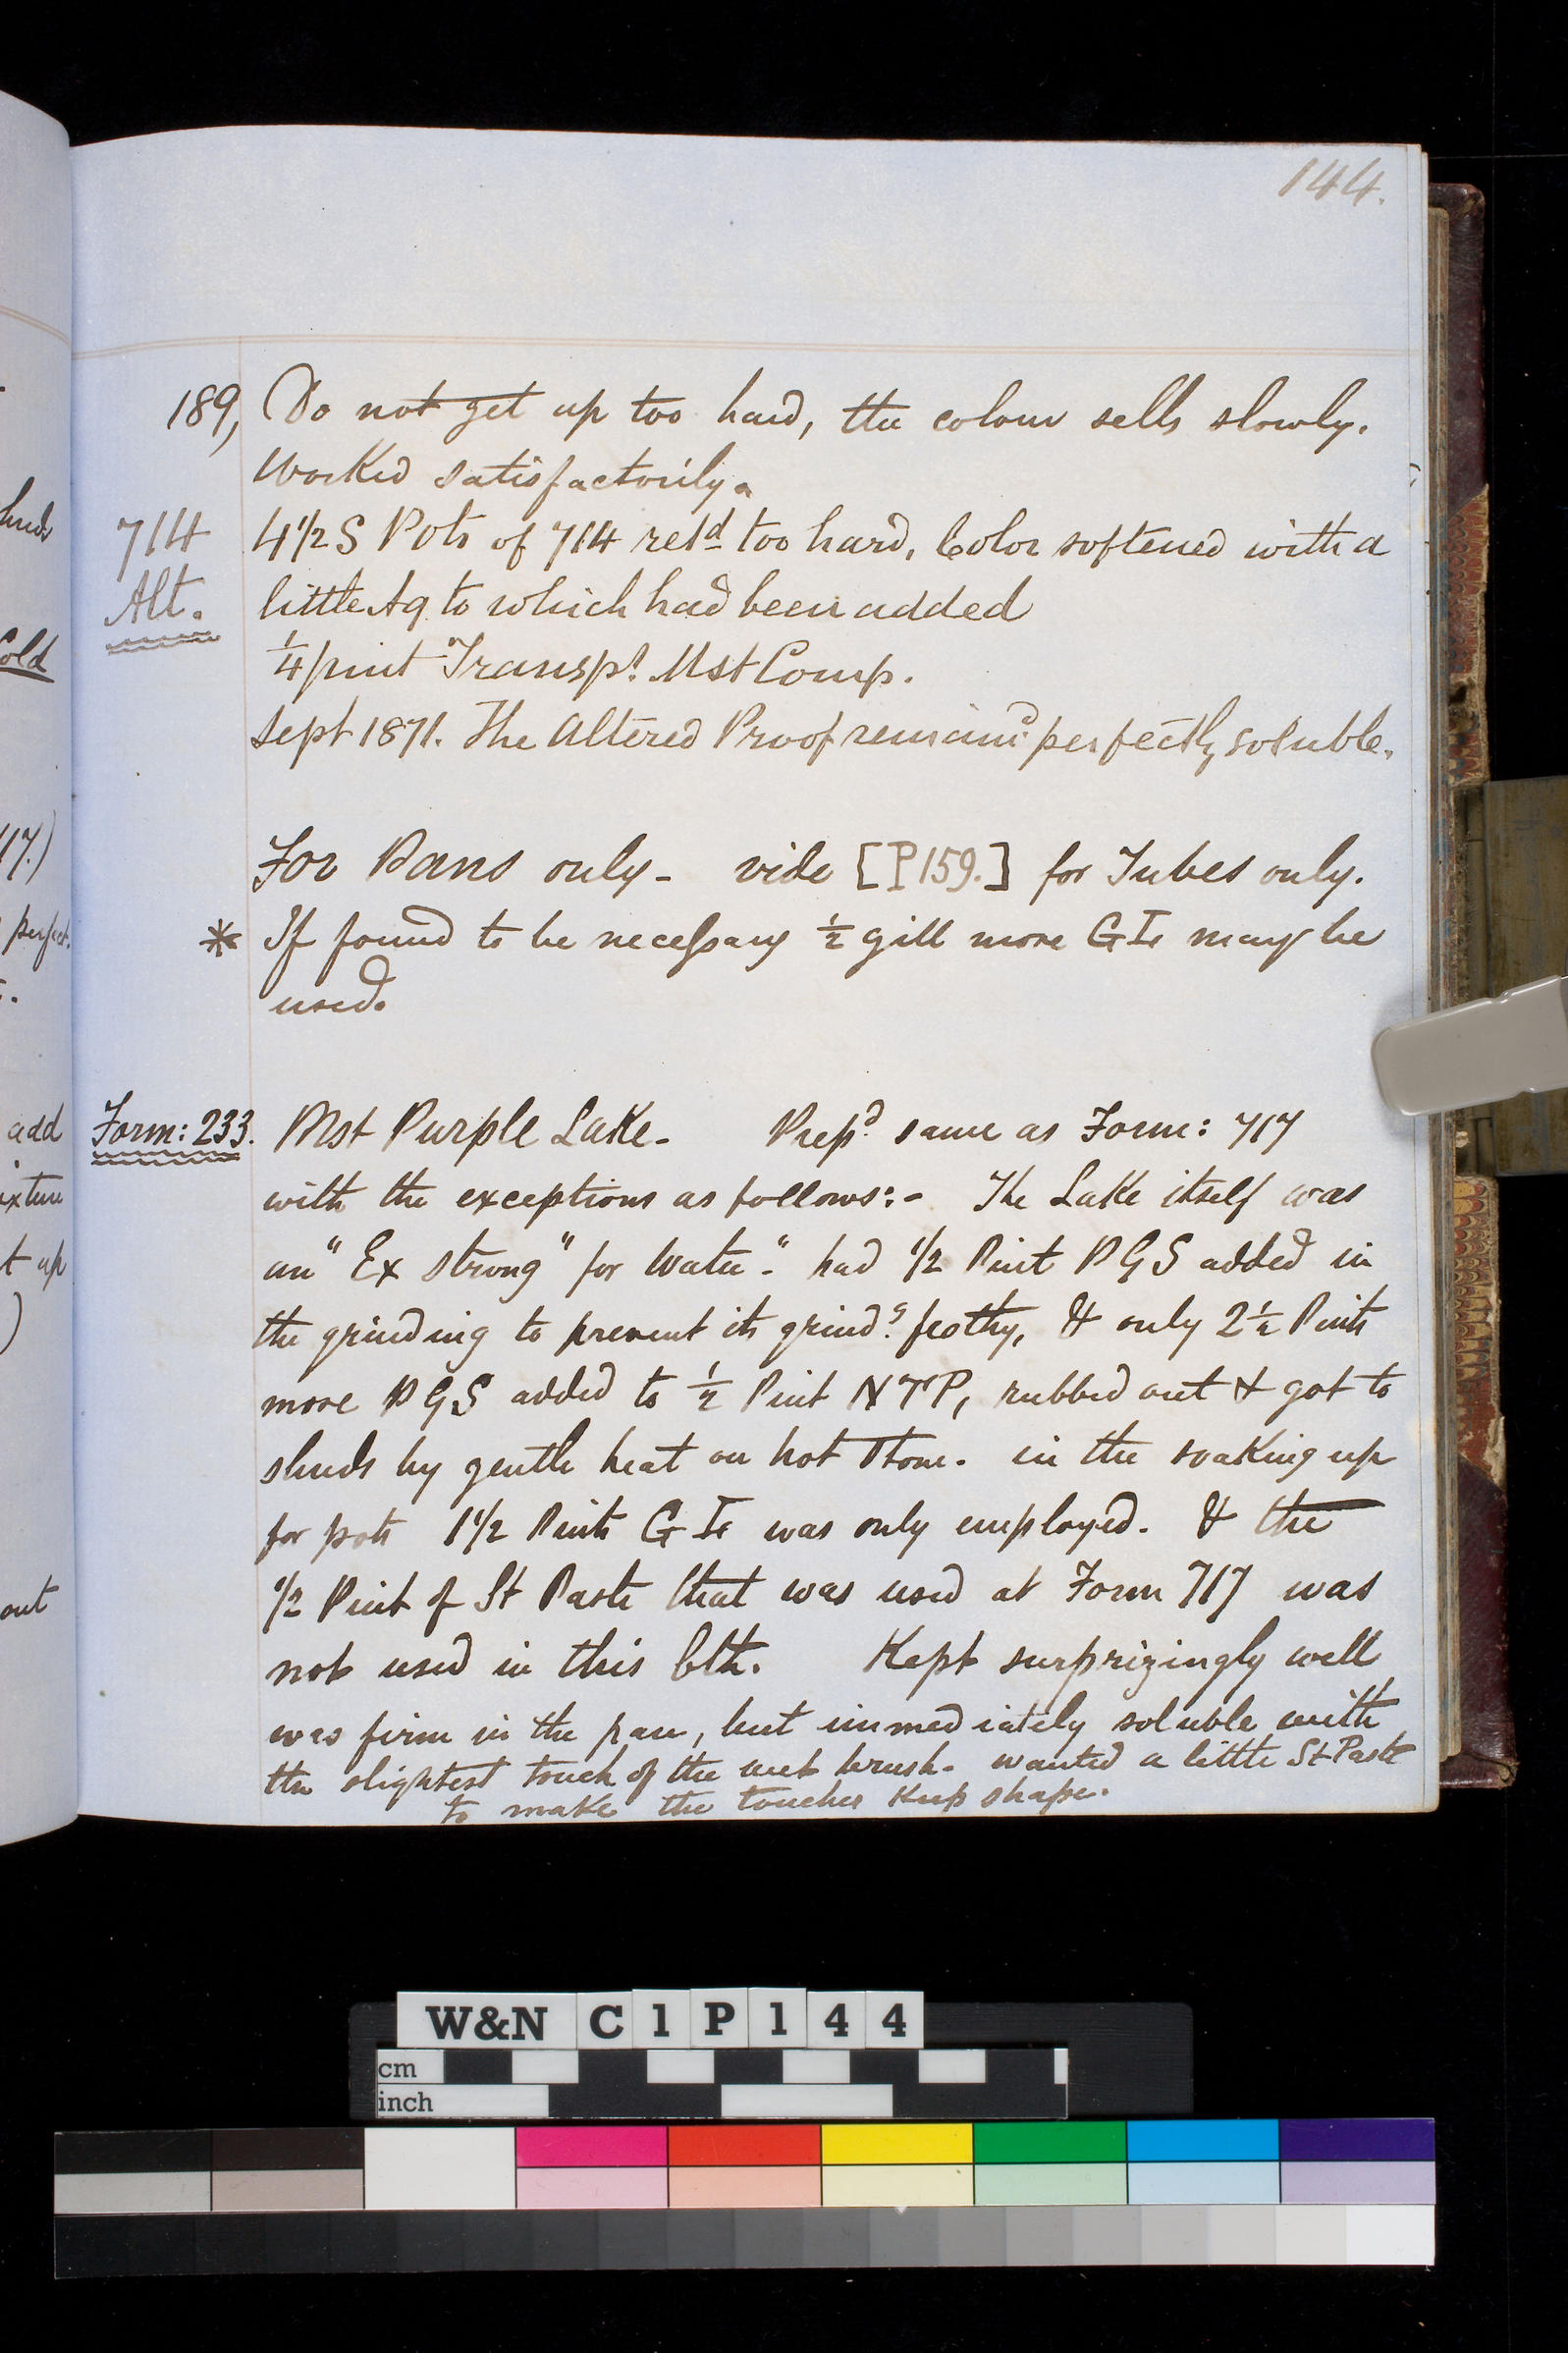 144.
189, Do not get up too hard, the colour sells slowly.
Worked satisfactorily.
714 4 1/2 S Pots of 714 retd too hard, Color softened with a
Alt. little Aq to which had been added
1/4 pint Transpt Mst Comp.
Sept 1871. The Altered Proof remaind perfectly soluble.
For Pans only - vide [P159.] for Tubes only.
* If found to be necessary 1/2 gill more G Ic may be
used.
Form: 233. Mst Purple Lake - Prepd same as Form: 717
with the exceptions as follows:- The Lake itself was
an "Ex strong" for Water - had 1/2 Pint PGS added in
the grinding to prevent its grindg frothy, & only 2 1/2 Pints
more PGS added to 1/2 Pint NTP, rubbed out & got to
shuds by gentle heat on hot Stone. in the soaking up
for pots 1 1/2 Pints G Ic was only employed. & the
1/2 Pint of St Paste that was used at Form 717 was
not used in this bth. Kept surprizingly well
was firm in the pan, but immediately soluble with
the slightest touch of the wet brush - wanted a little St Paste
to make the touches keep shape.
huds
Cold
17.)
perfect.
add
ixture
t up
)
out
W&N C1P144
cm
inch